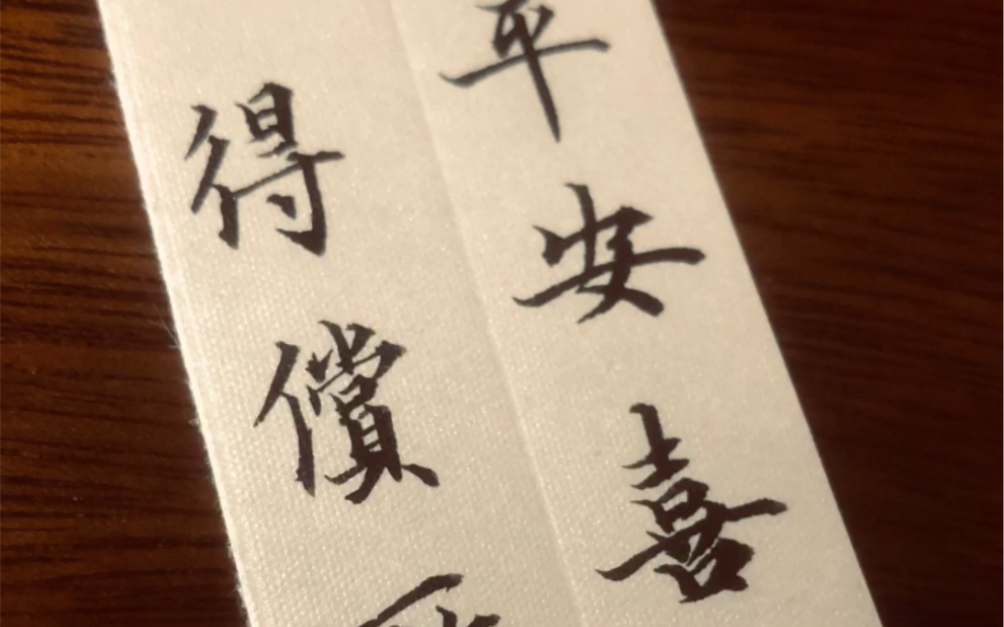 平安喜
得償